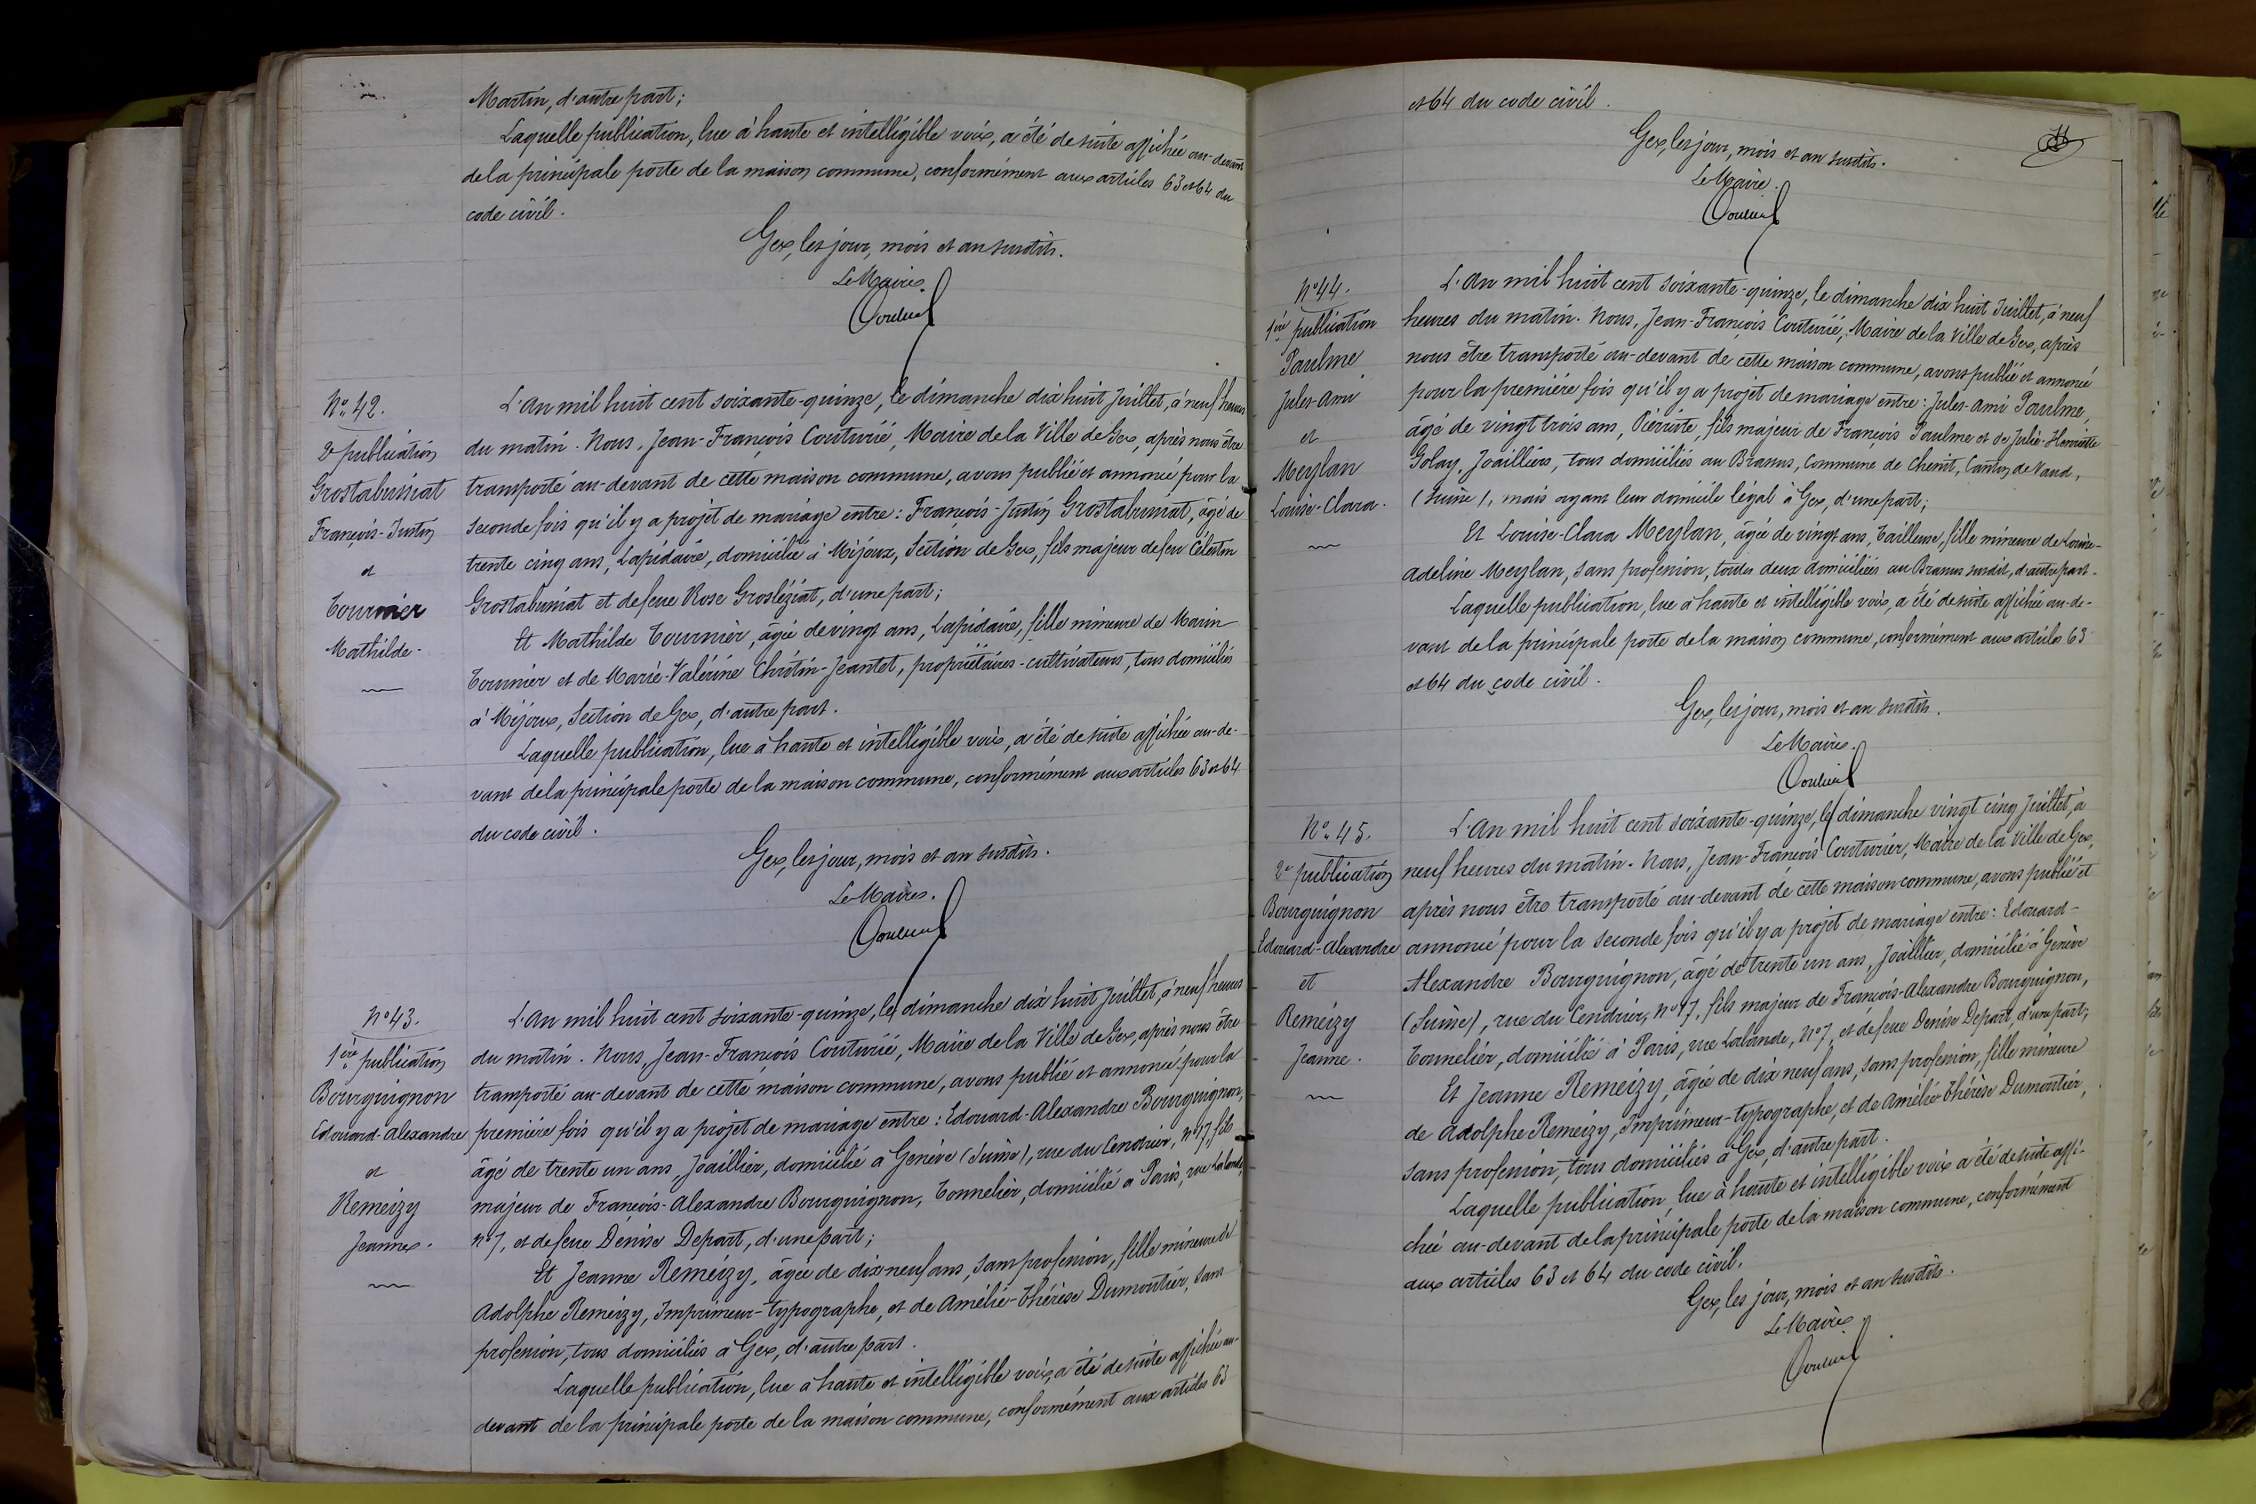 Martin, d'autre part;
Laquelle publication, lue à haute et intelligible voix, a été de suite affichée au-devant
de la principale porte de la maison commune, conformément aux articles 63 et 64 du
code civil.
Gex, les jour, mois et an susdits.
Le Maire.
N° 42.
2e publication
Grostabussiat
François-Justin
et
Tournier
Mathilde.
L'An mil huit cent soixante-quinze, le dimanche dix huit Juillet, à neuf heures
du matin. Nous, Jean-François Couturié, Maire de la Ville de Gex, après nous être
transporté au-devant de cette maison commune, avons publié et annoncé pour la
seconde fois qu'il y a projet de mariage entre: François-Justin Grostabussiat, âgé de
trente cinq ans, Lapidaire, domicilié à Mijoux, Section de Gex, fils majeur de feu Célestin
Grostabussiat et de feue Rose Grosléziat, d'une part;
Et Mathilde Tournier, âgée de vingt ans, Lapidaire, fille mineure de Marin
Tournier et de Marie-Valérine Chrétin-Jeantet, propriétaires-cultivateurs, tous domiciliés
à Mijoux, Section de Gex, d'autre part.
Laquelle publication, lue à haute et intelligible voix, a été de suite affichée au-de-
vant de la principale porte de la maison commune, conformément aux articles 63 et 64
du code civil.
Gex, les jour, mois et an susdits.
Le Maire.
N° 43.
1ère publication
Bourguignon
Edouard-Alexandre
et
Remeizy
Jeanne.
L'An mil huit cent soixante-quinze, le dimanche dix huit Juillet, à neuf heures
du matin. Nous, Jean-François Couturié, Maire de la Ville de Gex, après nous être
transporté au-devant de cette maison commune, avons publié et annoncé pour la
première fois qu'il y a projet de mariage entre: Edouard-Alexandre Bourguignon,
âgé de trente un ans, Joaillier, domicilié à Genève (Suisse), rue du Cendrier, n° 17, fils
majeur de François-Alexandre Bourguignon, Tonnelier, domicilié à Paris, rue Lalande,
n° 7, et de feue Dénise Depart, d'une part;
Et Jeanne Remeizy, âgée de dix neuf ans, sans profession, fille mineure de
Adolphe Remeizy, Imprimeur-typographe, et de Amélie-Thérèse Dumontier, sans
profession, tous domiciliés à Gex, d'autre part.
Laquelle publication, lue à haute et intelligible voix, a été de suite affichée au-
devant de la principale porte de la maison commune, conformément aux articles 63
et 64 du code civil.
Gex, les jour, mois et an susdits.
Le Maire.
N° 44.
1ère publication
Paulme
Jules-Ami
et
Meylan
Louise-Clara.
L'An mil huit cent soixante-quinze, le dimanche dix huit Juillet, à neuf
heures du matin. Nous, Jean-François Couturié, Maire de la Ville de Gex, après
nous être transporté au-devant de cette maison commune, avons publié et annoncé
pour la première fois qu'il y a projet de mariage entre: Jules-Ami Paulme,
âgé de vingt trois ans, Pierriste, fils majeur de François Paulme et de Julie-Henriette
Golay, Joailliers, tous domiciliés au Brassus, Commune de Chenit, Canton de Vaud,
(Suisse), mais ayant leur domicile légal à Gex, d'une part;
Et Louise-Clara Meylan, âgée de vingt ans, Tailleuse, fille mineure de Louise-
Adeline Meylan, sans profession, toutes deux domiciliées au Brassus susdit, d'autre part.
Laquelle publication, lue à haute et intelligible voix, a été de suite affichée au-de-
vant de la principale porte de la maison commune, conformément aux articles 63
et 64 du code civil.
Gex, les jour, mois et an susdits.
Le Maire.
N° 45.
2e publication
Bourguignon
Edouard-Alexandre
et
Remeizy
Jeanne.
L'An mil huit cent soixante-quinze, le dimanche vingt cinq Juillet, à
neuf heures du matin. Nous, Jean-François Couturier, Maire de la Ville de Gex,
après nous être transporté au-devant de cette maison commune, avons publié et
annoncé pour la seconde fois qu'il y a projet de mariage entre: Edouard-
Alexandre Bourguignon, âgé de trente un ans, Joaillier, domicilié à Genève
(Suisse), rue du Cendrier, n° 17, fils majeur de François-Alexandre Bourguignon,
Tonnelier, domicilié à Paris, rue Lalande, N° 7, et de feue Denise Depart, d'une part;
Et Jeanne Remeizy, âgée de dix neuf ans, sans profession, fille mineure
de Adolphe Remeizy, Imprimeur-typographe, et de Amélie Thérèse Dumontier,
sans profession, tous domiciliés à Gex, d'autre part.
Laquelle publication, lue à haute et intelligible voix a été de suite affi-
chée au-devant de la principale porte de la maison commune, conformément
aux articles 63 et 64 du code civil.
Gex, les jour, mois et an susdits.
Le Maire.